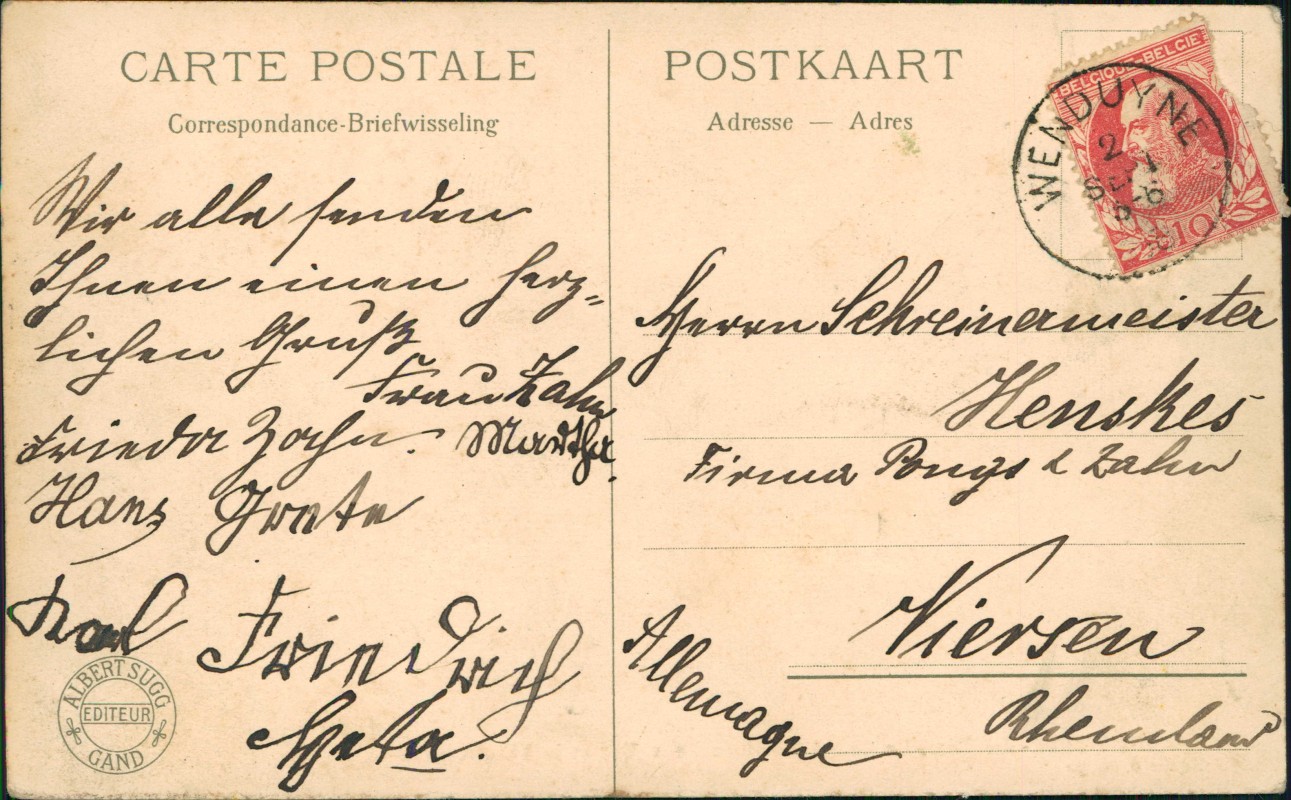 CARTE POSTALE
Correspondance-Briefwisseling
Wir alle senden
Ihnen einen herz-
lichen Gruß
Frau Zahn
Frieda Zahn. Martha.
Hans Grete
Karl Friedrich
ALBERT SUGG
EDITEUR
GAND
POSTKAART
Adresse — Adres
BELGIQUE-BELGIE
WENDUYNE
10
Herrn Schreinermeister
Henskes
Firma Pongs & Zahn
Viersen
Allemagne
Rheinland